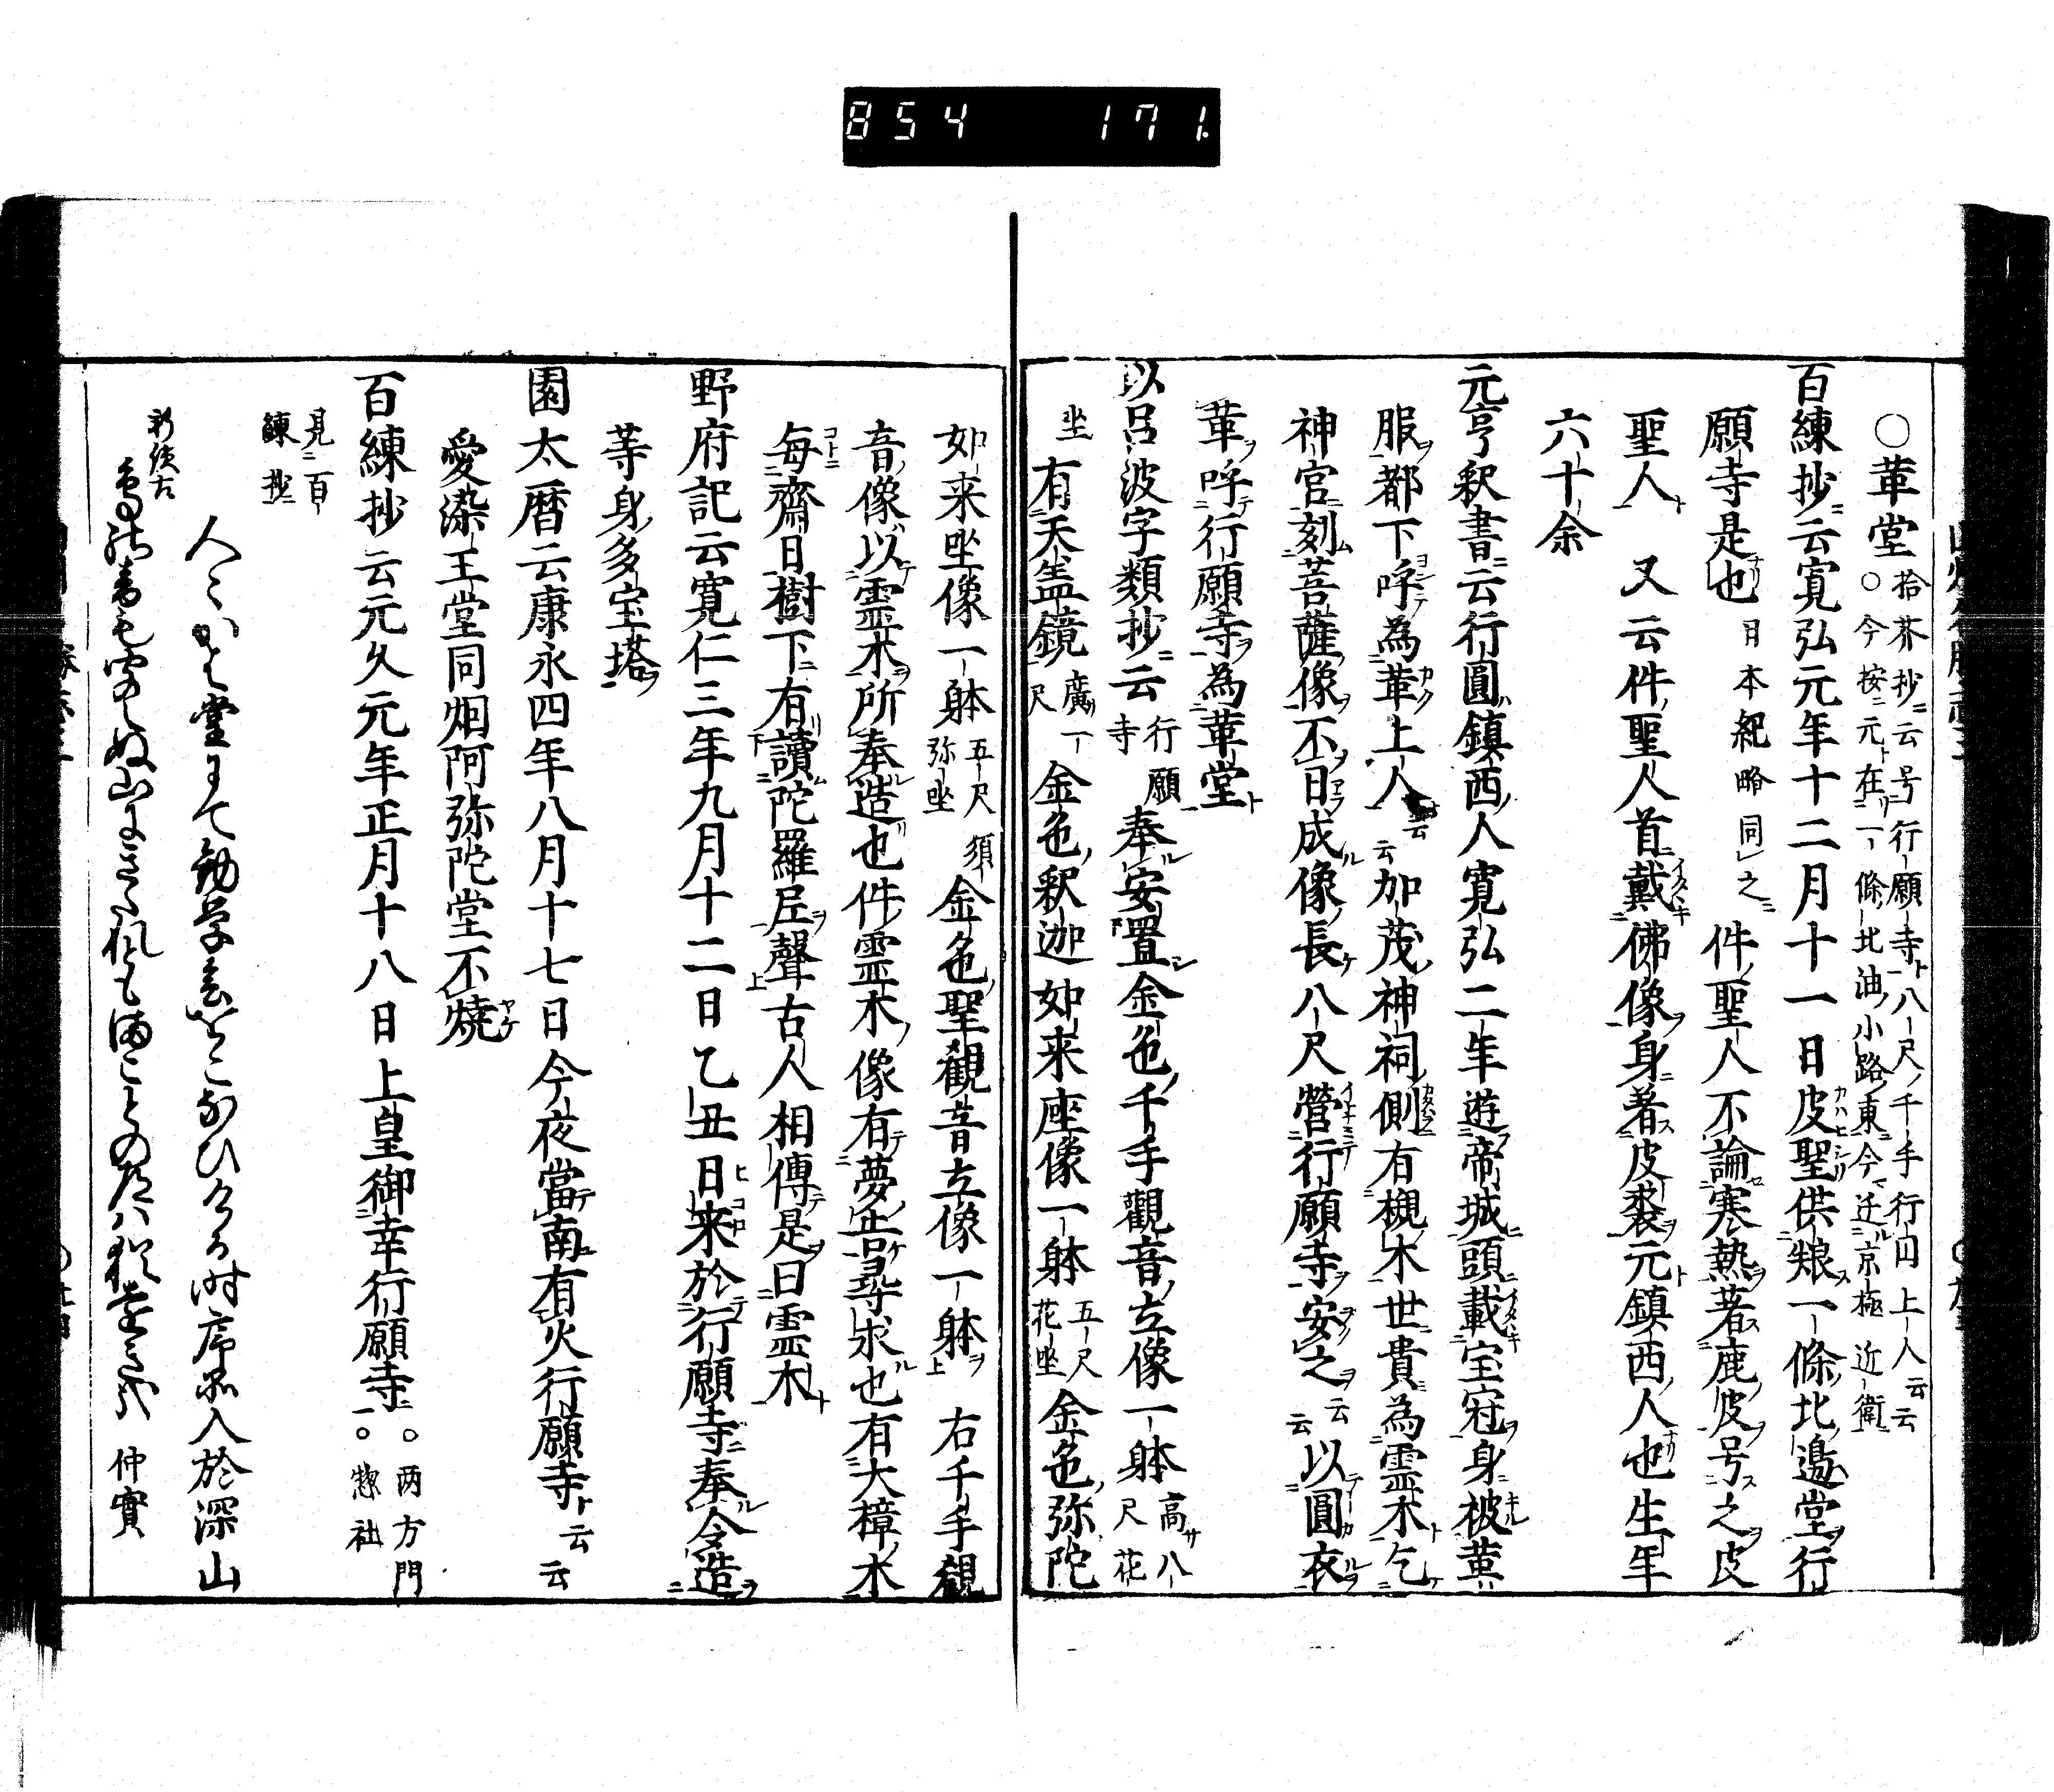 854 171
○革堂
拾芥抄云号行願寺八尺千手行円上人云云
○今按元在一條北油小路東今迁京極近衛
百練抄云寛弘元年十二月十一日皮聖供粮一條北邊堂行
願寺是也
日本紀略同之
件聖人不論寒熱著鹿皮号之皮
聖人 又云件聖人首戴佛像身著皮裘元鎮西人也生年
六十余
元亨釈書云行圓鎮西人寛弘二年遊帝城頭載宝冠身被革
服都下呼為革上人云云加茂神祠側有槻木世貴為霊木乞
神官刻菩薩像不日成像長八尺營行願寺安之云云以圓衣
革呼行願寺為革堂
以呂波字類抄云
行願寺
奉安置金色千手觀音立像一躰
高八尺花坐
有天盖鏡
廣一尺
金色釈迦如来座像一躰
五尺花坐
金色弥陀
如来坐像一躰
五尺須弥坐
金色聖觀音立像一躰 右千手觀
音像以霊木所奉造也件霊木像有夢告尋求也有大樟木
毎齋日樹下有讀陀羅尼聲古人相傳是曰霊木
野府記云寛仁三年九月十二日乙丑日来於行願寺奉令造
等身多宝塔
園太暦云康永四年八月十七日今夜當南有火行願寺云云
愛染王堂同烟阿弥陀堂不燒
百練抄云元久元年正月十八日上皇御幸行願寺
○両方門
○惣社
見百練抄
人〻かは堂にて勧学会をこなひける時序品入於深山
新後古
仲實